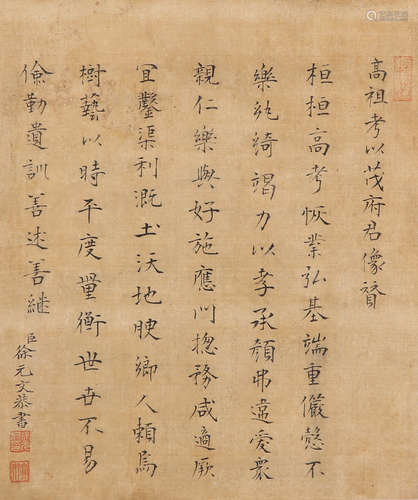 高祖考以茂府君像贊
桓桓高考恢業弘基端重儼慤不
樂紈綺竭力以孝承顏弗違愛衆
親仁樂與好施應門揔務咸適厥
宜鑿渠利溉土沃地腴鄉人賴焉
樹藝以時平度量衡世世不易
儉勤遺訓善述善繼
臣徐元文恭書